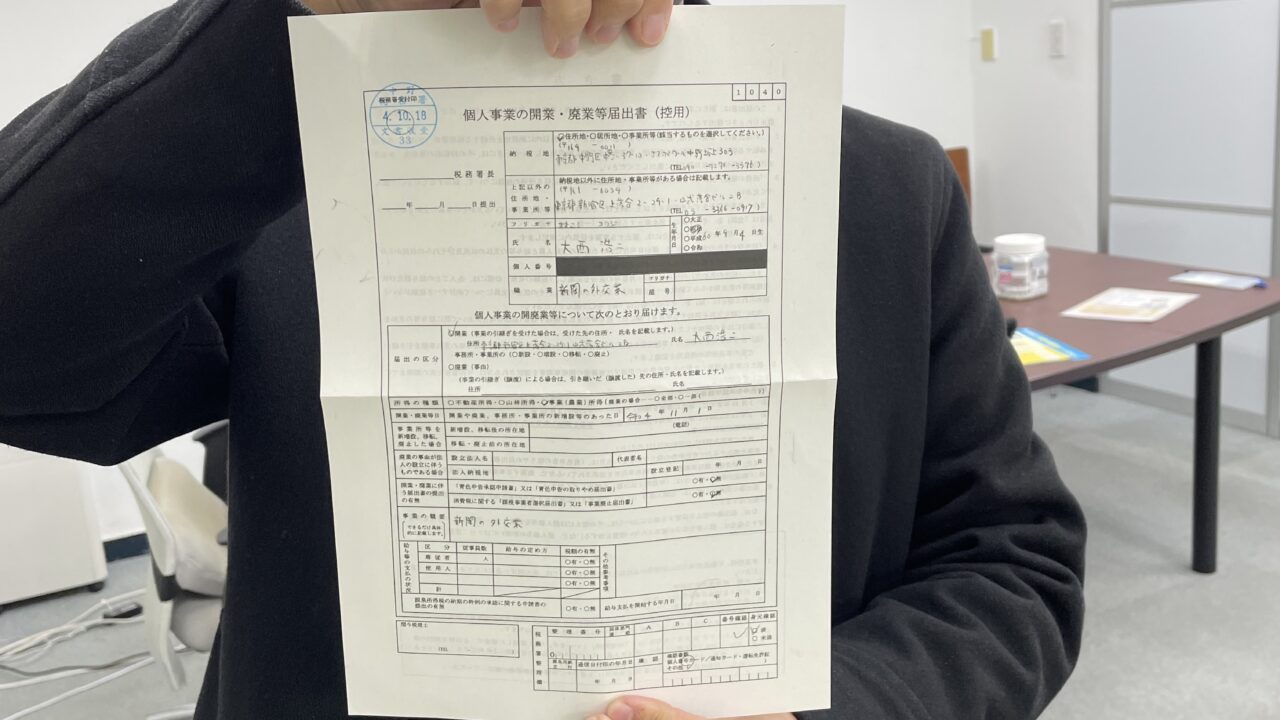 1040
税務署受付印
中野
4.10.18
文書収受
33
個人事業の開業・廃業等届出書(控用)
税務署長
年 月 日提出
納税地
○住所地・○居所地・○事業所等(該当するものを選択してください。)
(TEL
上記以外の住所地・事業所等
納税地以外に住所地・事業所等がある場合は記載します。
(TEL 03 -3366-0417)
フリガナ
氏名
大西 浩二
生年月日
○大正
○昭和
○平成
○令和
年 9月 4日生
個人番号
職業
新聞の外交業
フリガナ
屋号
個人事業の開廃業等について次のとおり届けます。
届出の区分
○開業(事業の引継ぎを受けた場合は、受けた先の住所・氏名を記載します。)
住所
氏名 大西浩二
事務所・事業所の(○新設・○増設・○移転・○廃止)
○廃業(事由)
(事業の引継ぎ(譲渡)による場合は、引き継いだ(譲渡した)先の住所・氏名を記載します。)
住所 氏名
所得の種類
○不動産所得・○山林所得・○事業(農業)所得〔廃業の場合……○全部・○一部( )〕
開業・廃業等日
開業や廃業、事務所・事業所の新増設等のあった日 令和 4 年 11 月 1 日
事業所等を新増設、移転、廃止した場合
新増設、移転後の所在地 (電話)
移転・廃止前の所在地
廃業の事由が法人の設立に伴うものである場合
設立法人名 代表者名
法人納税地 設立登記 年 月 日
開業・廃業に伴う届出書の提出の有無
「青色申告承認申請書」又は「青色申告の取りやめ届出書」 ○有・○無
消費税に関する「課税事業者選択届出書」又は「事業廃止届出書」 ○有・○無
事業の概要
できるだけ具体的に記載します。
新聞の外交業
給与等の支払の状況
区分 従事員数 給与の定め方 税額の有無
専従者 人 ○有・○無
使用人 ○有・○無
計 ○有・○無
その他参考事項
源泉所得税の納期の特例の承認に関する申請書の提出の有無 ○有・○無 給与支払を開始する年月日 年 月 日
関与税理士
(TEL
税務署整理欄
整理番号 A B C 番号確認 身元確認
0
□済
○未済
通信日付印の年月日 確認
年 月 日
確認書類
個人番号カード/通知カード・運転免許証
その他( )